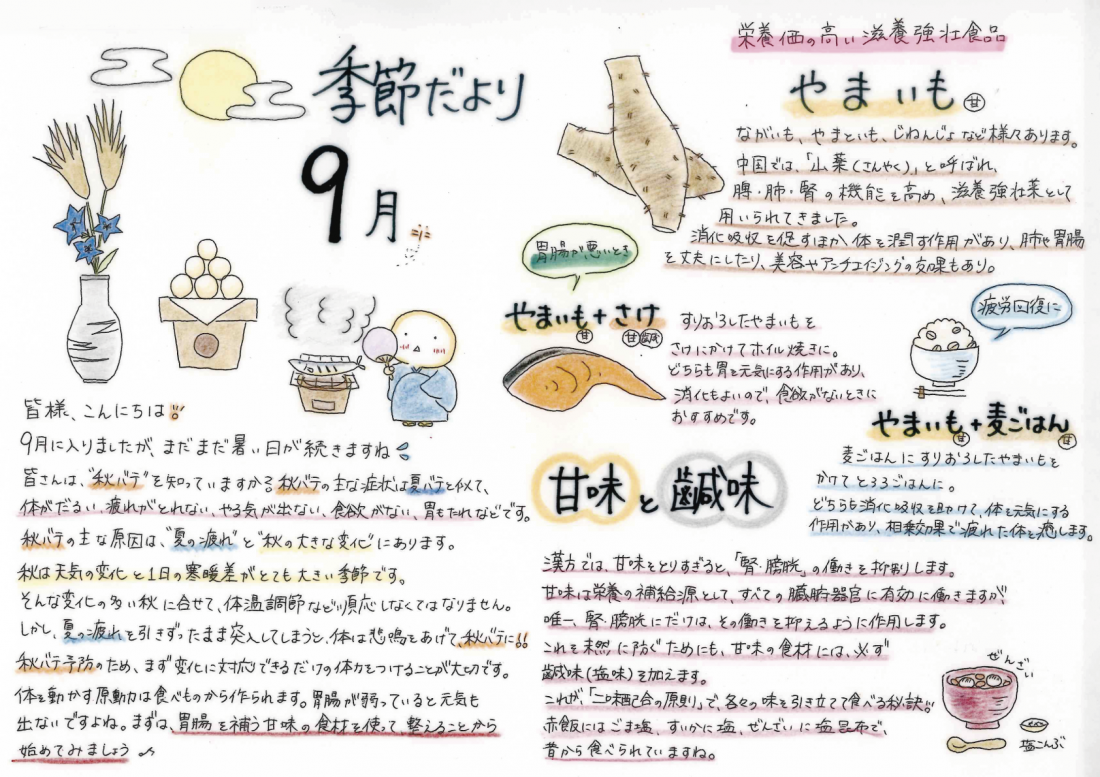 季節だより
9月
皆様、こんにちは!!
9月に入りましたが、まだまだ暑い日が続きますね
皆さんは、"秋バテ"を知っていますか?秋バテの主な症状は夏バテと似て、
体がだるい、疲れがとれない、やる気が出ない、食欲がない、胃もたれなどです。
秋バテの主な原因は、"夏の疲れ"と"秋の大きな変化"にあります。
秋は天気の変化と1日の寒暖差がとても大きい季節です。
そんな変化の多い秋に合せて、体温調節など順応しなくてはなりません。
しかし、夏の疲れを引きずったまま突入してしまうと、体は悲鳴をあげて、秋バテに!!
秋バテ予防のため、まず変化に対応できるだけの体力をつけることが大切です。
体を動かす原動力は食べものから作られます。胃腸が弱っていると元気も
出ないですよね。まずは、胃腸を補う甘味の食材を使って、整えることから
始めてみましょう♪
栄養価の高い滋養強壮食品
やまいも 甘
ながいも、やまといも、じねんじょなど様々あります。
中国では、「山薬(さんやく)」と呼ばれ、
脾・肺・腎の機能を高め、滋養強壮薬として
用いられてきました。
消化吸収を促すほか、体を潤す作用があり、肺や胃腸
を丈夫にしたり、美容やアンチエイジングの効果もあり。
胃腸が悪いとき
やまいも+さけ
甘 甘鹹
すりおろしたやまいもを
さけにかけてホイル焼きに。
どちらも胃を元気にする作用があり、
消化もよいので、食欲がないときに
おすすめです。
疲労回復に
やまいも+麦ごはん
甘 甘
麦ごはんにすりおろしたやまいもを
かけてとろろごはんに。
どちらも消化吸収を助けて、体を元気にする
作用があり、相乗効果で疲れた体を癒します。
甘味と鹹味
漢方では、甘味をとりすぎると、「腎・膀胱」の働きを抑制します。
甘味は栄養の補給源として、すべての臓腑器官に有効に働きますが、
唯一、腎・膀胱にだけは、その働きを抑えるように作用します。
これを未然に防ぐためにも、甘味の食材には、必ず
鹹味(塩味)を加えます。
これが、「二味配合の原則」で、各々の味を引き立てて食べる秘訣!!
赤飯にはごま塩、すいかに塩、ぜんざいに塩昆布で、
昔から食べられていますね。
ぜんざい
塩こんぶ